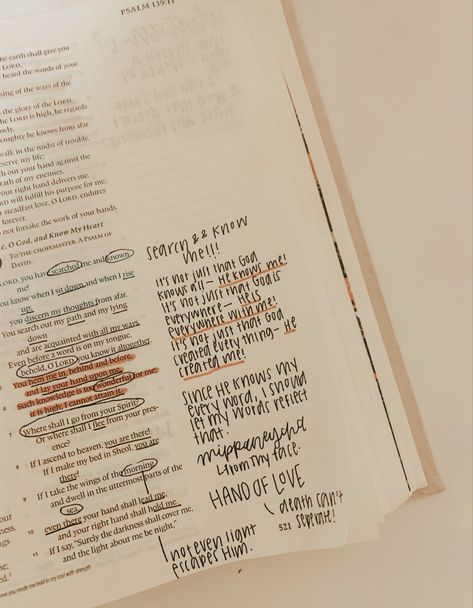 PSALM 139:11
the earth shall give you
LORD,
heard the words of your
ning of the ways of the
the glory of the LORD.
he LORD is high, he regards
owly,
haughty he knows from afar.
walk in the midst of trouble,
reserve my life;
tch out your hand against the
rath of my enemies,
your right hand delivers me.
will fulfill his purpose for me;
steadfast love, O LORD, endures
forever.
not forsake the work of your hands.
O God, and Know My Heart
TO THE CHOIRMASTER. A PSALM OF
DAVID.
LORD, you have searched me and known
me!
you know when I sit down and when I rise
up;
you discern my thoughts from afar.
You search out my path and my lying
down
and are acquainted with all my ways.
Even before a word is on my tongue,
behold, O LORD, you know it altogether.
You hem me in, behind and before,
and lay your hand upon me.
6 Such knowledge is too wonderful for me;
it is high; I cannot attain it.
7 Where shall I go from your Spirit?
Or where shall I flee from your pres-
ence?
8 If I ascend to heaven, you are there!
If I make my bed in Sheol, you are
there!
9 If I take the wings of the morning
and dwell in the uttermost parts of the
sea,
10 even there your hand shall lead me,
and your right hand shall hold me.
11 If I say, "Surely the darkness shall cover me,
and the light about me be night,"
you made me bold in my soul with strength
search && know
me!!!
It's not just that God
knows all - He knows me!
It's not just that God is
everywhere - He is
everywhere with me!
It's not just that God
created everything - He
created me!
Since He knows my
every word, I should
let my words reflect
that.
from thy face.
HAND OF LOVE
death can't
seperate!
521
not even light
escapes Him.